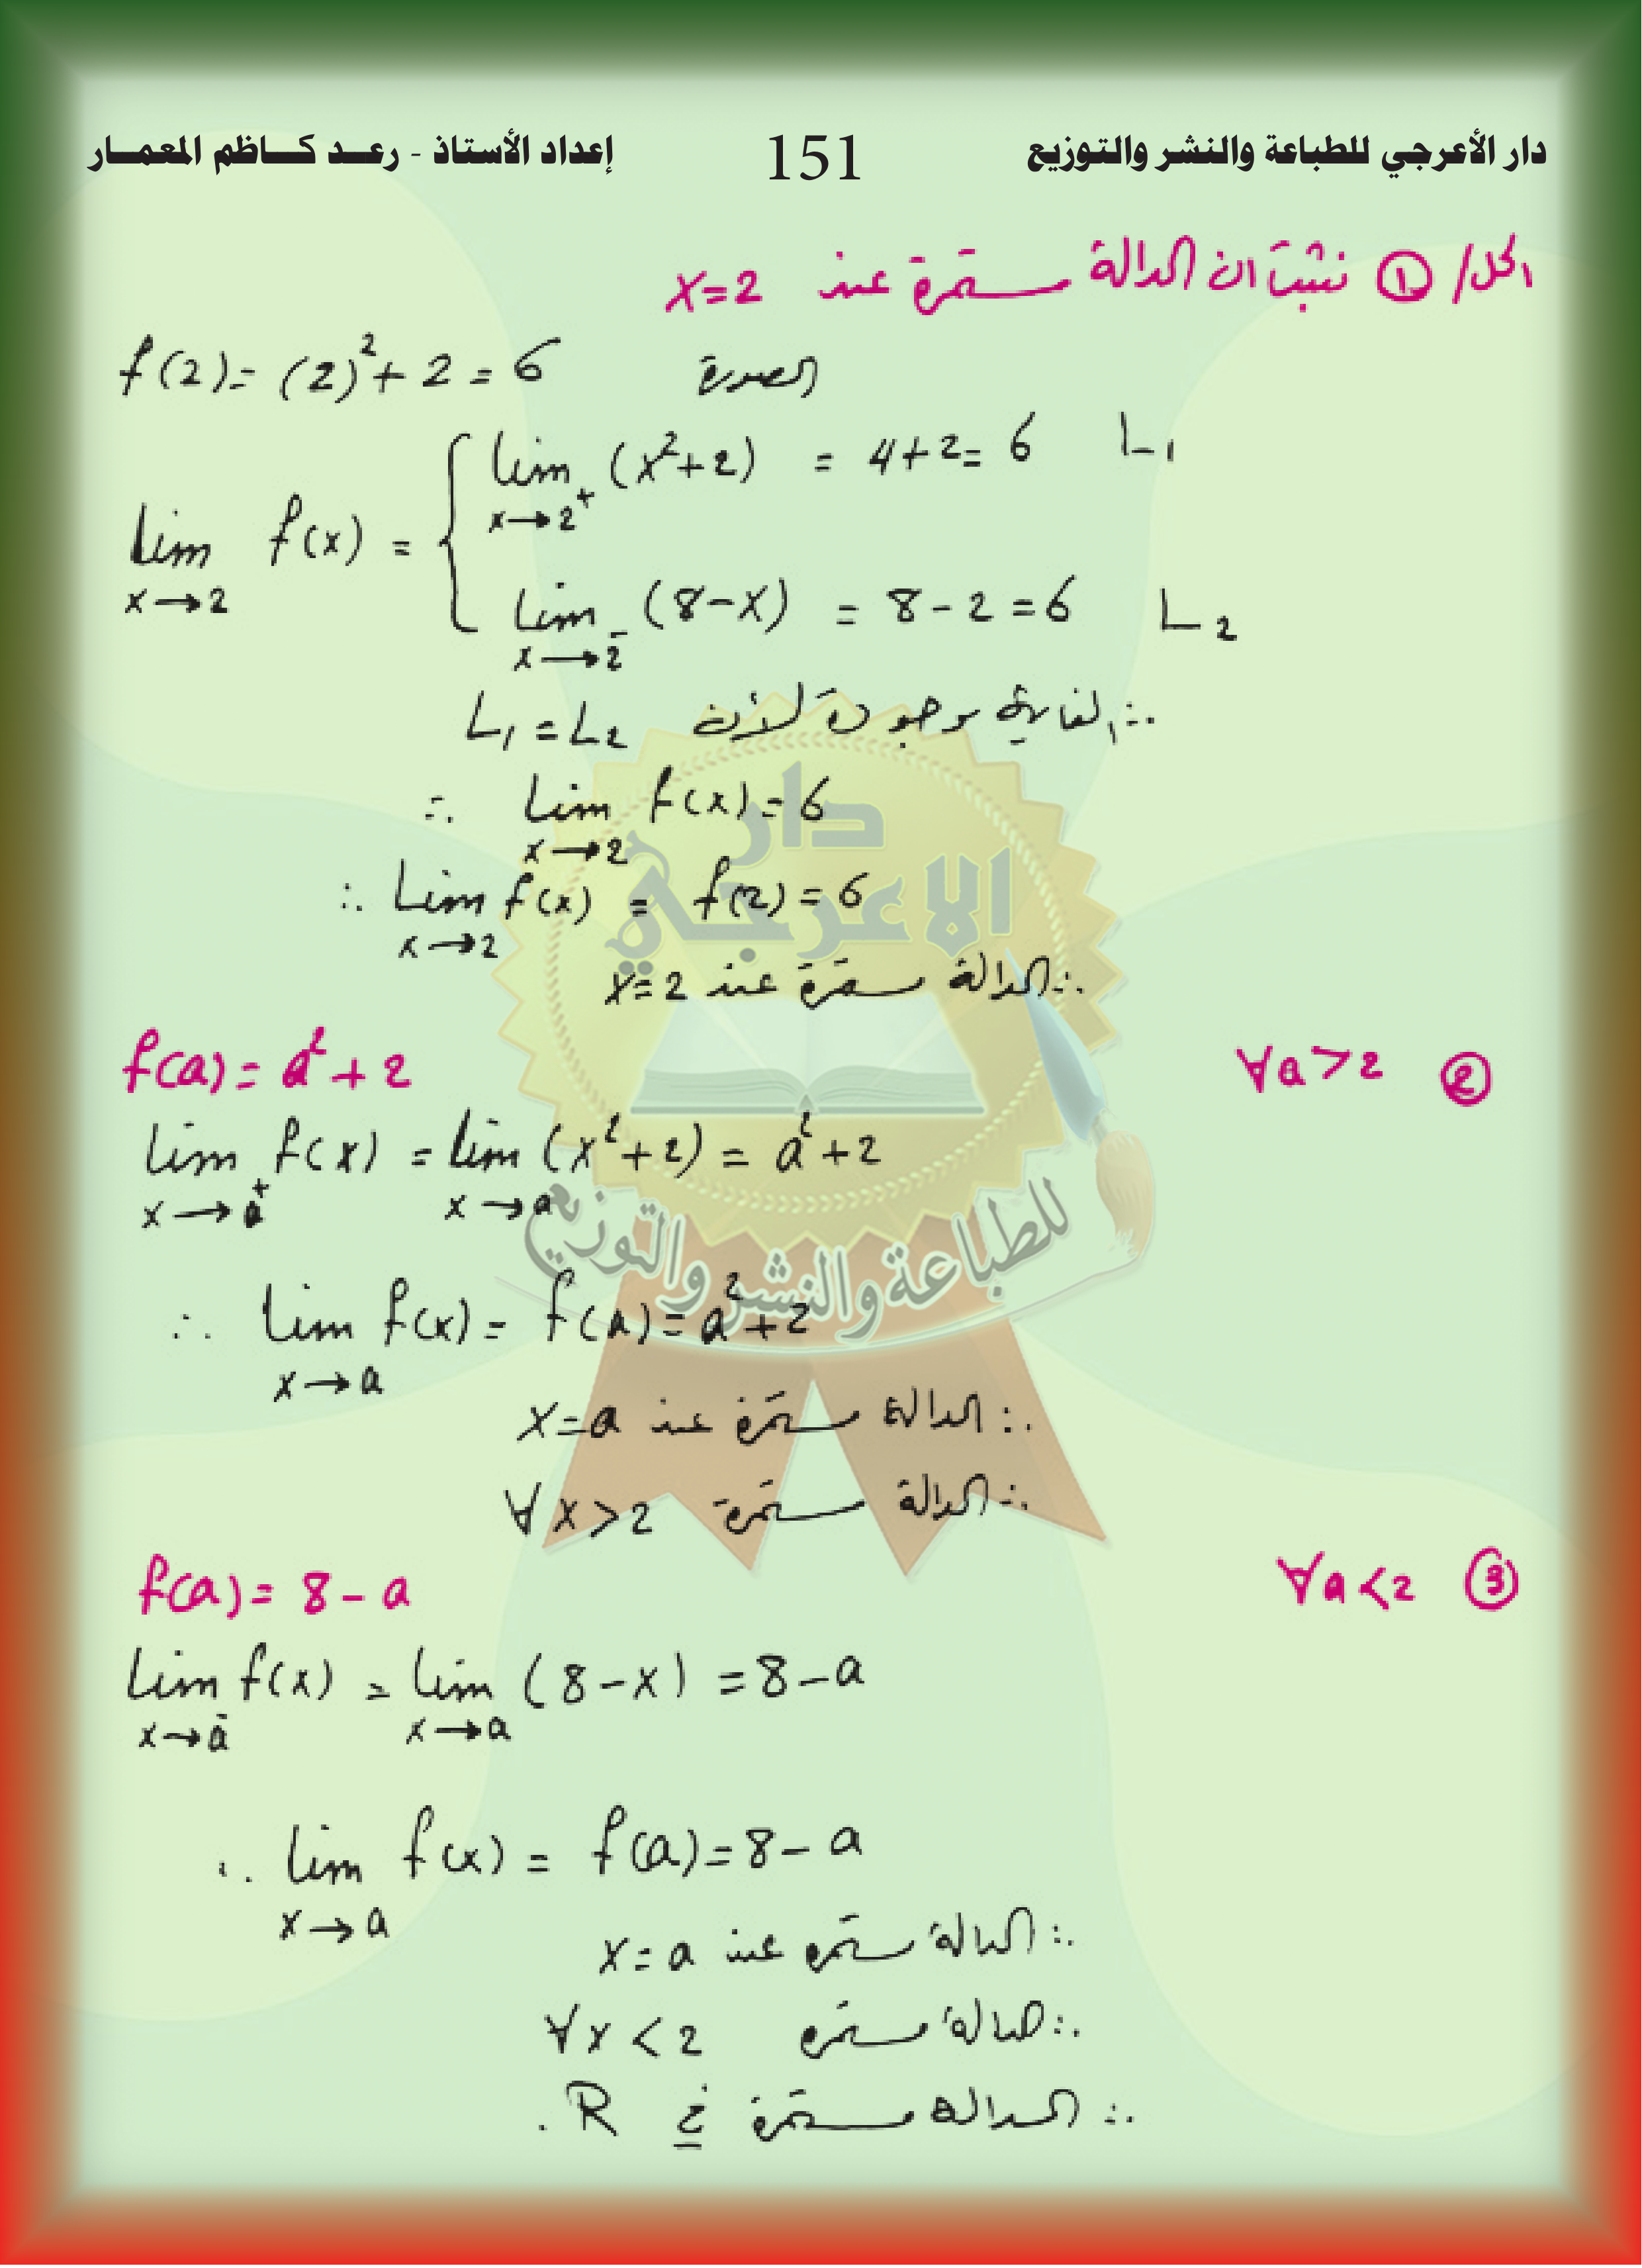 دار الأعرجي للطباعة والنشر والتوزيع 151 إعداد الأستاذ - رعد كاظم المعمار
الحل/ ① نثبت ان الدالة مستمرة عند x=2
f(2)= (2)²+ 2 = 6 الصورة
lim x→2 f(x) = { lim x→2⁺ (x²+2) = 4+2= 6 L₁
lim x→2⁻ (8-x) = 8-2=6 L₂
∴ الغاية موجودة لأن L₁=L₂
∴ lim x→2 f(x)=6
∴ lim x→2 f(x) = f(2)=6
∴ الدالة مستمرة عند x=2
② ∀a>2 f(a)= a²+2
lim x→a⁺ f(x) = lim x→a (x²+2) = a²+2
∴ lim x→a f(x)= f(a)=a²+2
∴ الدالة مستمرة عند x=a
∴ الدالة مستمرة ∀x>2
③ ∀a<2 f(a)= 8-a
lim x→a⁻ f(x) = lim x→a (8-x) =8-a
∴ lim x→a f(x) = f(a)=8-a
∴ الدالة مستمرة عند x=a
∴ الدالة مستمرة ∀x<2
∴ الدالة مستمرة في R.
دار
الاعرجي
للطباعة والنشر والتوزيع